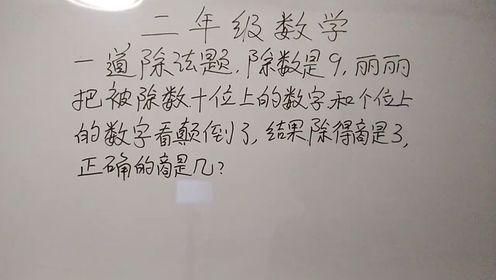 二年级数学
一道除法题，除数是9，丽丽
把被除数十位上的数字和个位上
的数字看颠倒了，结果除得商是3，
正确的商是几？